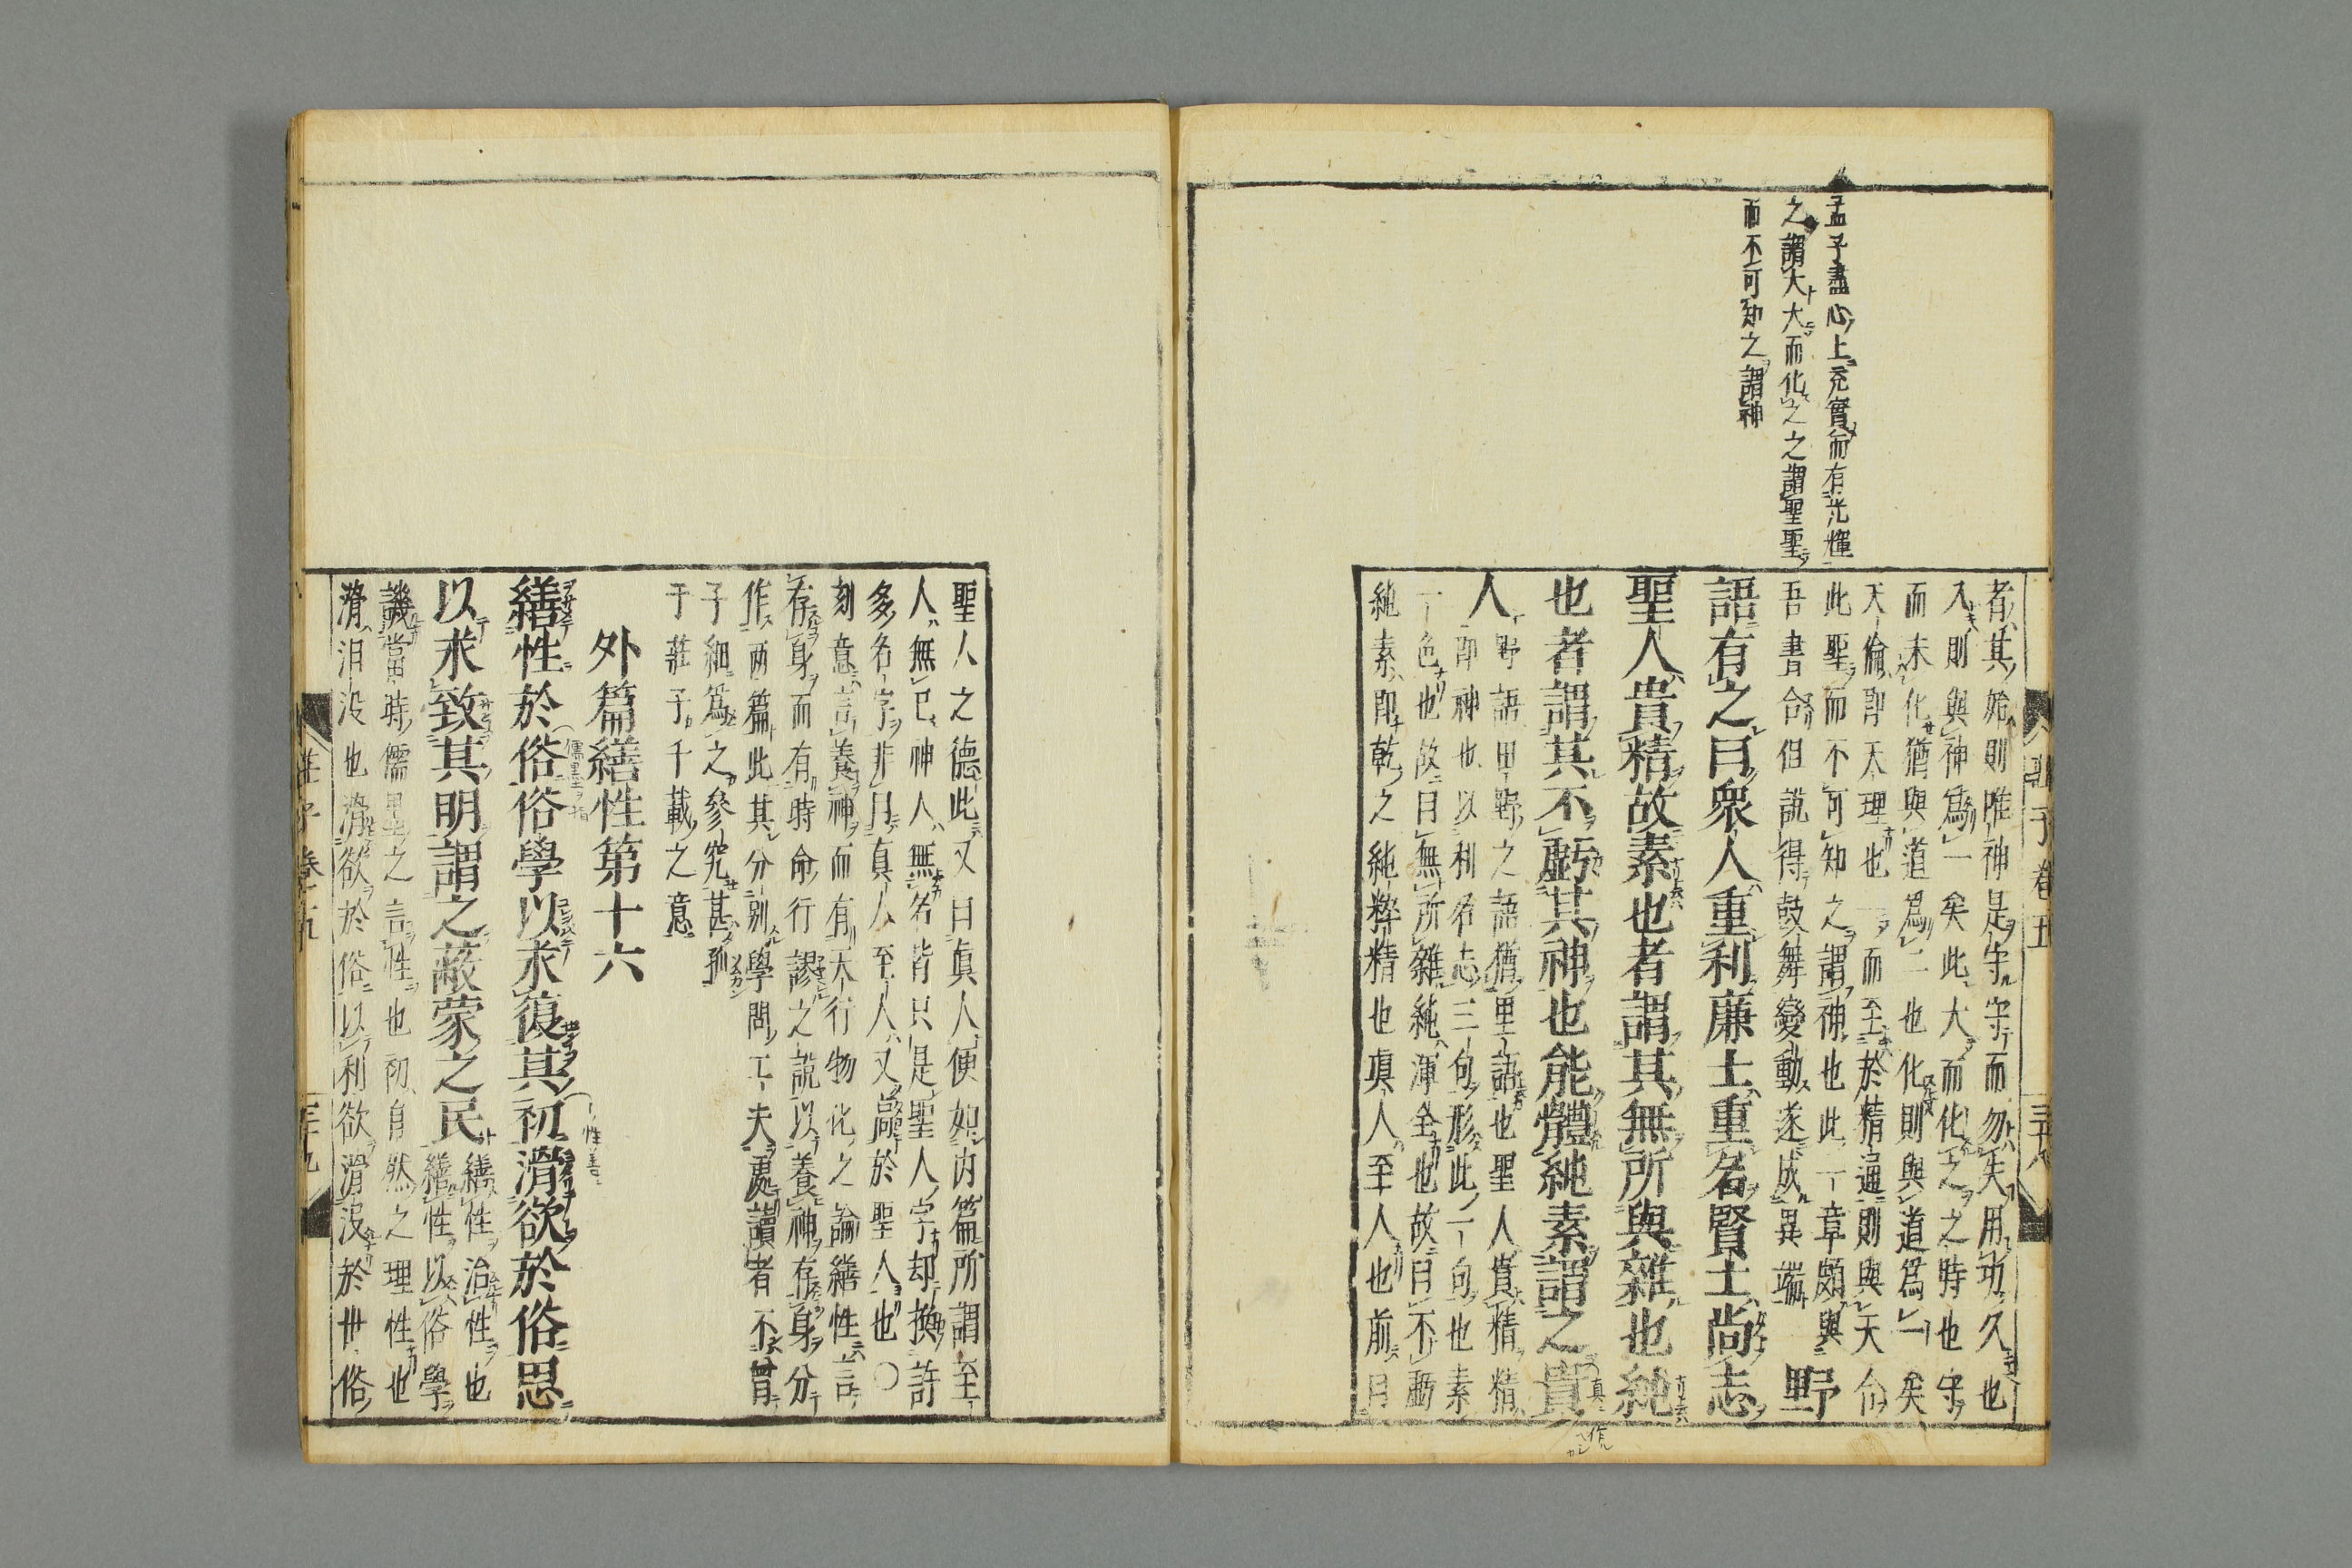 孟子盡心上充實而有光輝
之謂大大而化之之謂聖聖
而不可知之謂神
莊子卷五
三十八
者其始則唯神是守守而勿失用功久也
久則與神爲一矣此大而化之之時也守
而未化猶與道爲二也化則與道爲一矣
天倫即天理也一而至於精通則與天合
此聖而不可知之謂神也此一章頗與
吾書合但說得鼓舞變動遂成異端
野
語有之曰衆人重利廉士重名賢士尚志
聖人貴精故素也者謂其無所與雜也純
也者謂其不虧其神也能體純素謂之貴
人
野語田野之語猶里語也聖人貴精精
即神也以利名志三句形此一句也素
一色也故曰無所雜純渾全也故曰不虧
純素即乾之純粹精也眞人至人也前曰
聖人之德此又曰眞人便如内篇所謂至
人無已神人無名皆只是聖人字却換許
多名字非曰眞人至人又高於聖人也〇
刻意言養神而有天行物化之論繕性言
存身而有時命行謬之說以養神存身分
作兩篇此其分別學問工夫處讀者不曾
子細爲之參究甚孤
于莊子千載之意
外篇繕性第十六
繕性於俗俗學以求復其初滑欲於俗思
以求致其明謂之蔽蒙之民
繕性治性也
繕性以俗學
譏當時儒墨之言性也初自然之理性也
滑汨没也滑欲於俗以利欲滑没於世俗
莊子卷五
三十九